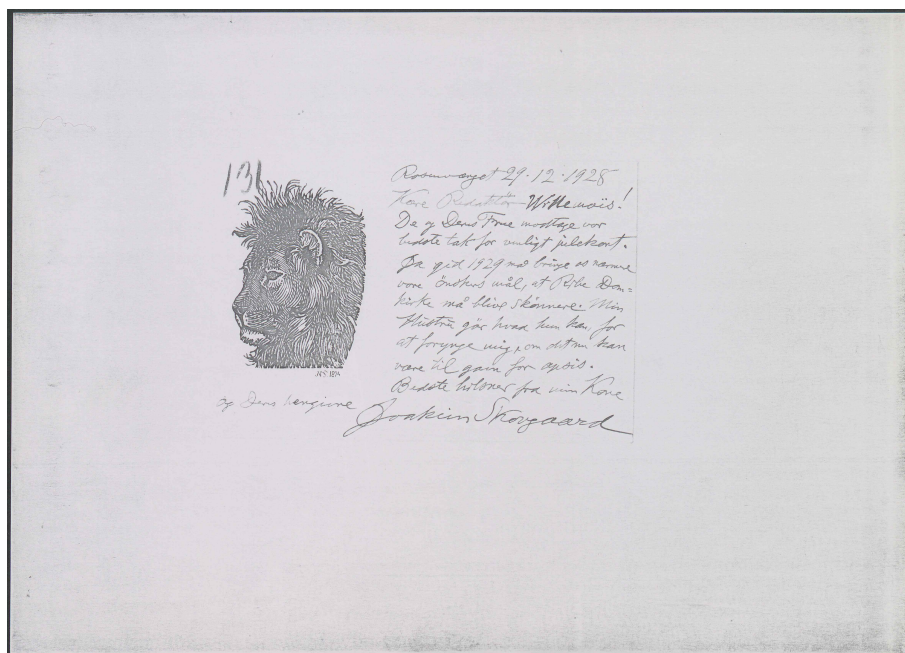 131
Rosenvænget 29.12.1928
Kære Redaktör Willemoës!
De og Deres Frue modtage vor
bedste tak for venligt julekort.
Ja gid 1929 må bringe os nærmere
vore önskers mål, at Ribe Dom=
kirke må blive skönnere. Min
Hustru gör hvad hun kan for
at forynge mig, om det nu kan
være til gavn for apsis.
Bedste hilsner fra min Kone
og Deres hengivne
Joakim Skovgaard
N.S. 1894